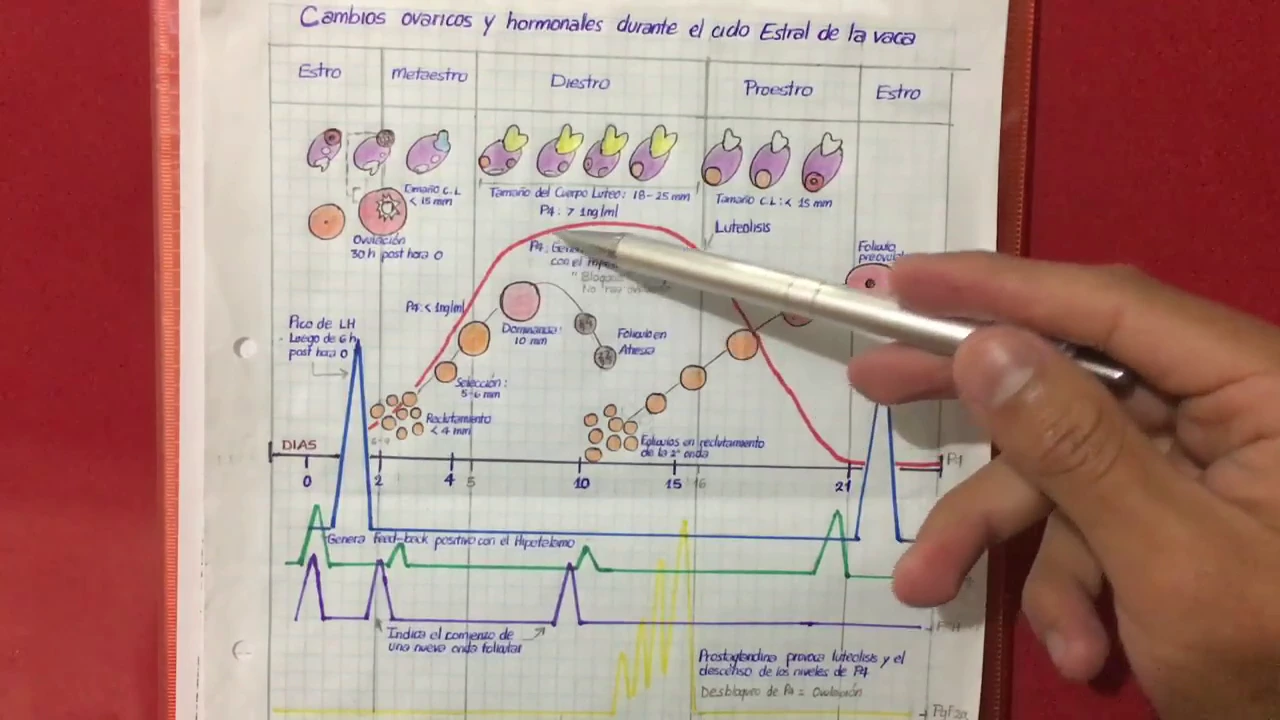 Cambios ovaricos y hormonales durante el ciclo Estral de la vaca
Estro
Metaestro
Diestro
Proestro
Estro
Tamaño C.L
< 15 mm
Tamaño del Cuerpo Luteo: 18-25 mm
P4: > 1ng/ml
Tamaño C.L: < 15 mm
Luteolisis
Ovulación
30 h post hora 0
P4: Gene
con el
"Bloq
No
Foliculo
preovul
P4: < 1ng/ml
Pico de LH
Luego de 6 h
post hora 0
Dominancia:
10 mm
Foliculo en
Atresia
Selección:
5-6 mm
Reclutamiento
< 4 mm
Foliculos en reclutamiento
de la 2ª onda
DIAS
P4
0
2
4
5
10
15
16
21
Genera feed-back positivo con el Hipotalamo
Indica el comienzo de
una nueva onda folicular
Prostaglandina provoca luteolisis y el
descenso de los niveles de P4
Desbloqueo de P4 = Ovulación
PgF2α